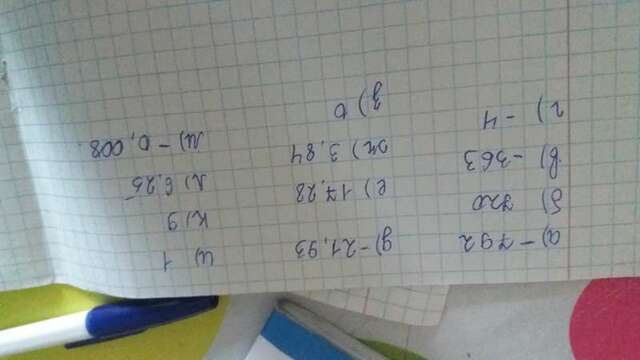 а) -792
б) 720
в) -363
г) -4
д) -21,93
е) 17,28
ж) 3,84
з) 0
и) 1
к) 9
л) 6,25
м) -0,008